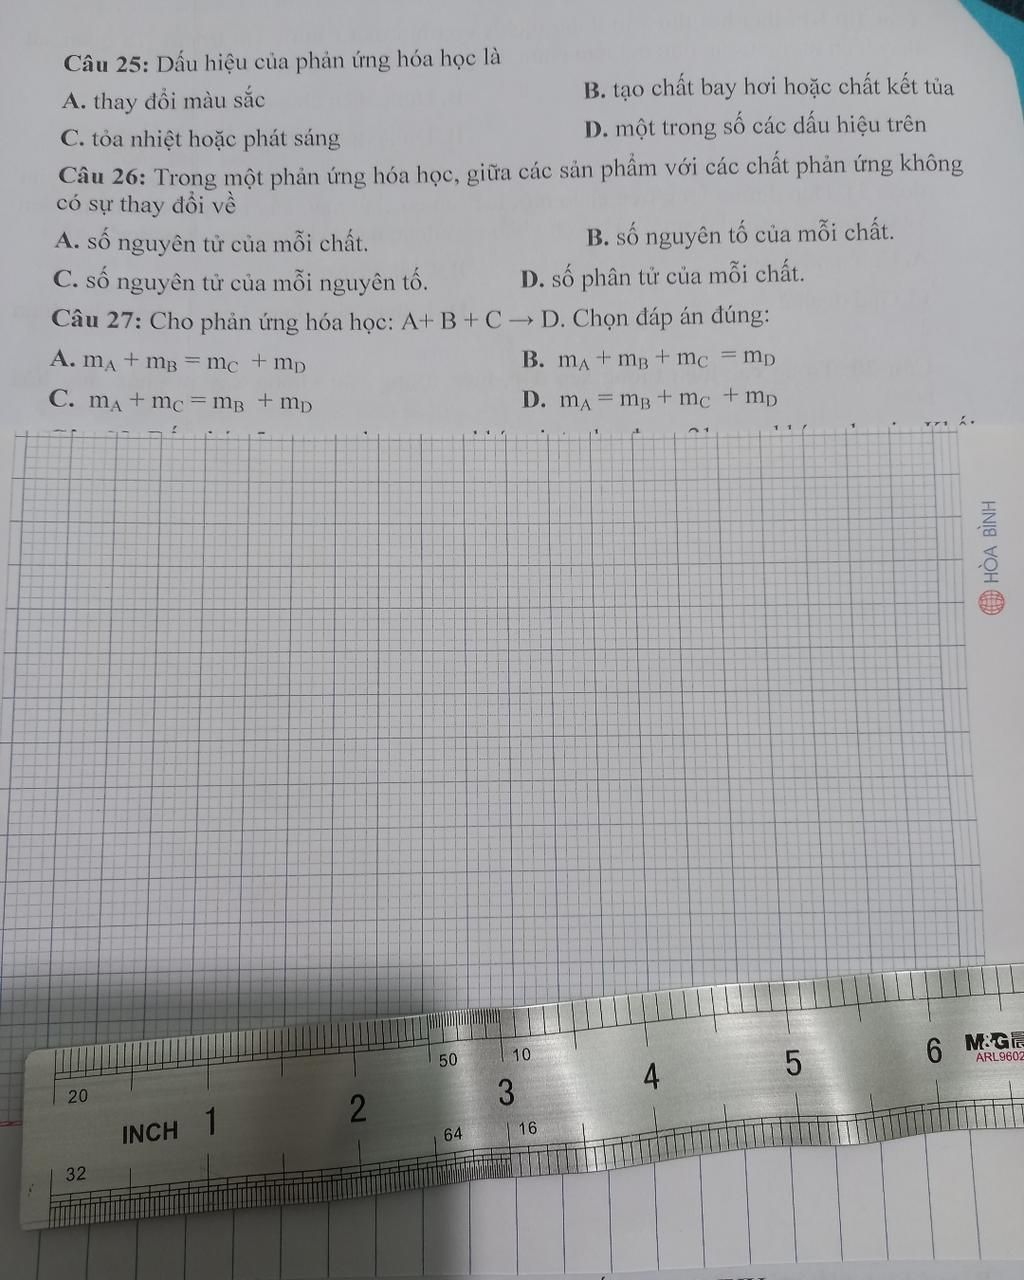 Câu 25: Dấu hiệu của phản ứng hóa học là
A. thay đổi màu sắc B. tạo chất bay hơi hoặc chất kết tủa
C. tỏa nhiệt hoặc phát sáng D. một trong số các dấu hiệu trên
Câu 26: Trong một phản ứng hóa học, giữa các sản phẩm với các chất phản ứng không
có sự thay đổi về
A. số nguyên tử của mỗi chất. B. số nguyên tố của mỗi chất.
C. số nguyên tử của mỗi nguyên tố. D. số phân tử của mỗi chất.
Câu 27: Cho phản ứng hóa học: A+ B + C → D. Chọn đáp án đúng:
A. m_A + m_B = m_C + m_D B. m_A + m_B + m_C = m_D
C. m_A + m_C = m_B + m_D D. m_A = m_B + m_C + m_D
HÒA BÌNH
20 50 10
INCH 1 2 3 4 5 6 M&G
ARL9602
32 64 16